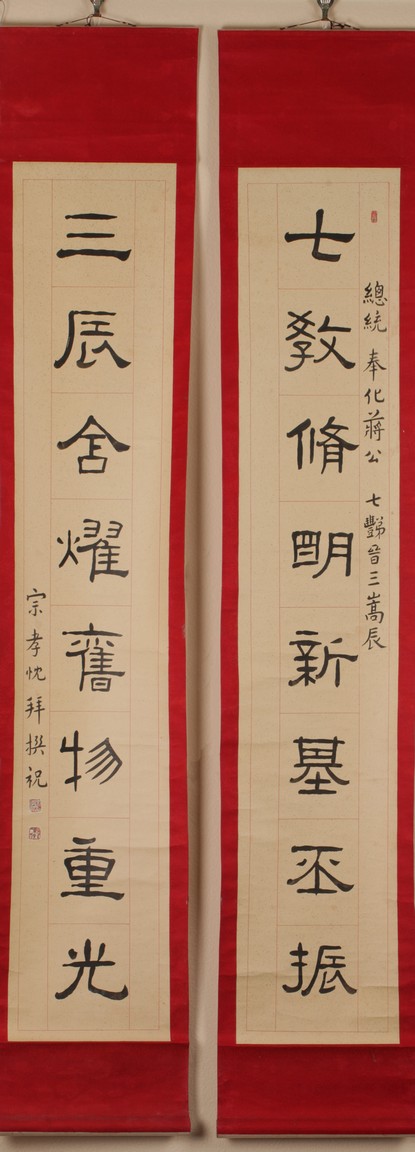 七教脩明新基丕振
總統 奉化蔣公 七豑晉三嵩辰
三辰含燿舊物重光
宗孝忱拜撰祝